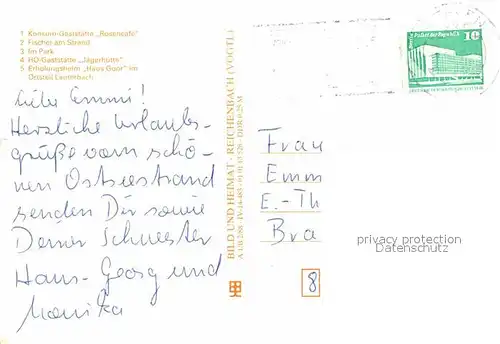 1 Konsum-Gaststätte „Rosencafé“
2 Fischer am Strand
3 Im Park
4 HO-Gaststätte „Jägerhütte“
5 Erholungsheim „Haus Goor“ im
Ortsteil Lauterbach
Liebe Emmi!
Herzliche Urlaubs-
grüße vom schö-
nen Ostseestrand
senden Dir sowie
Deiner Schwester
Hans-Georg und
Monika
BILD UND HEIMAT · REICHENBACH (VOGTL)
DDR 0,25 M
10
Frau
Emm
E.-Th
Bra
privacy protection
Datenschutz
8